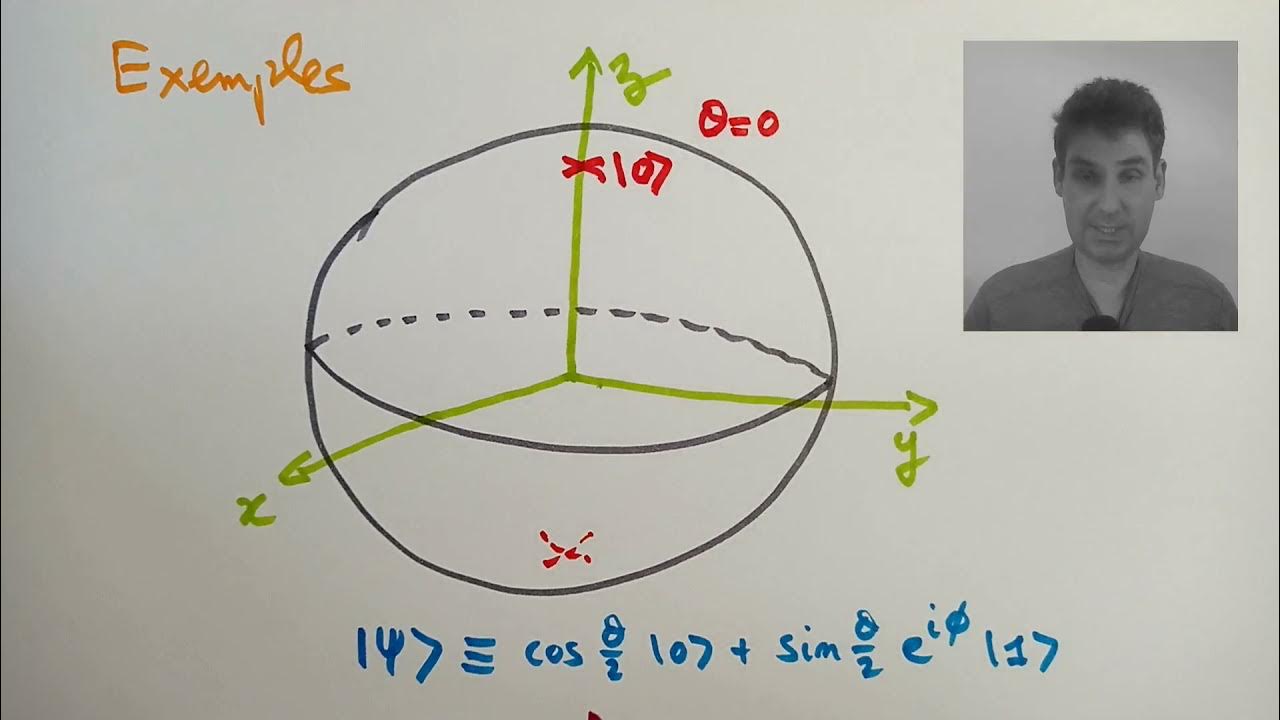 Exemples
z
θ=0
|0⟩
y
x
|ψ⟩ ≡ cos θ/2 |0⟩ + sin θ/2 e^{iφ} |1⟩